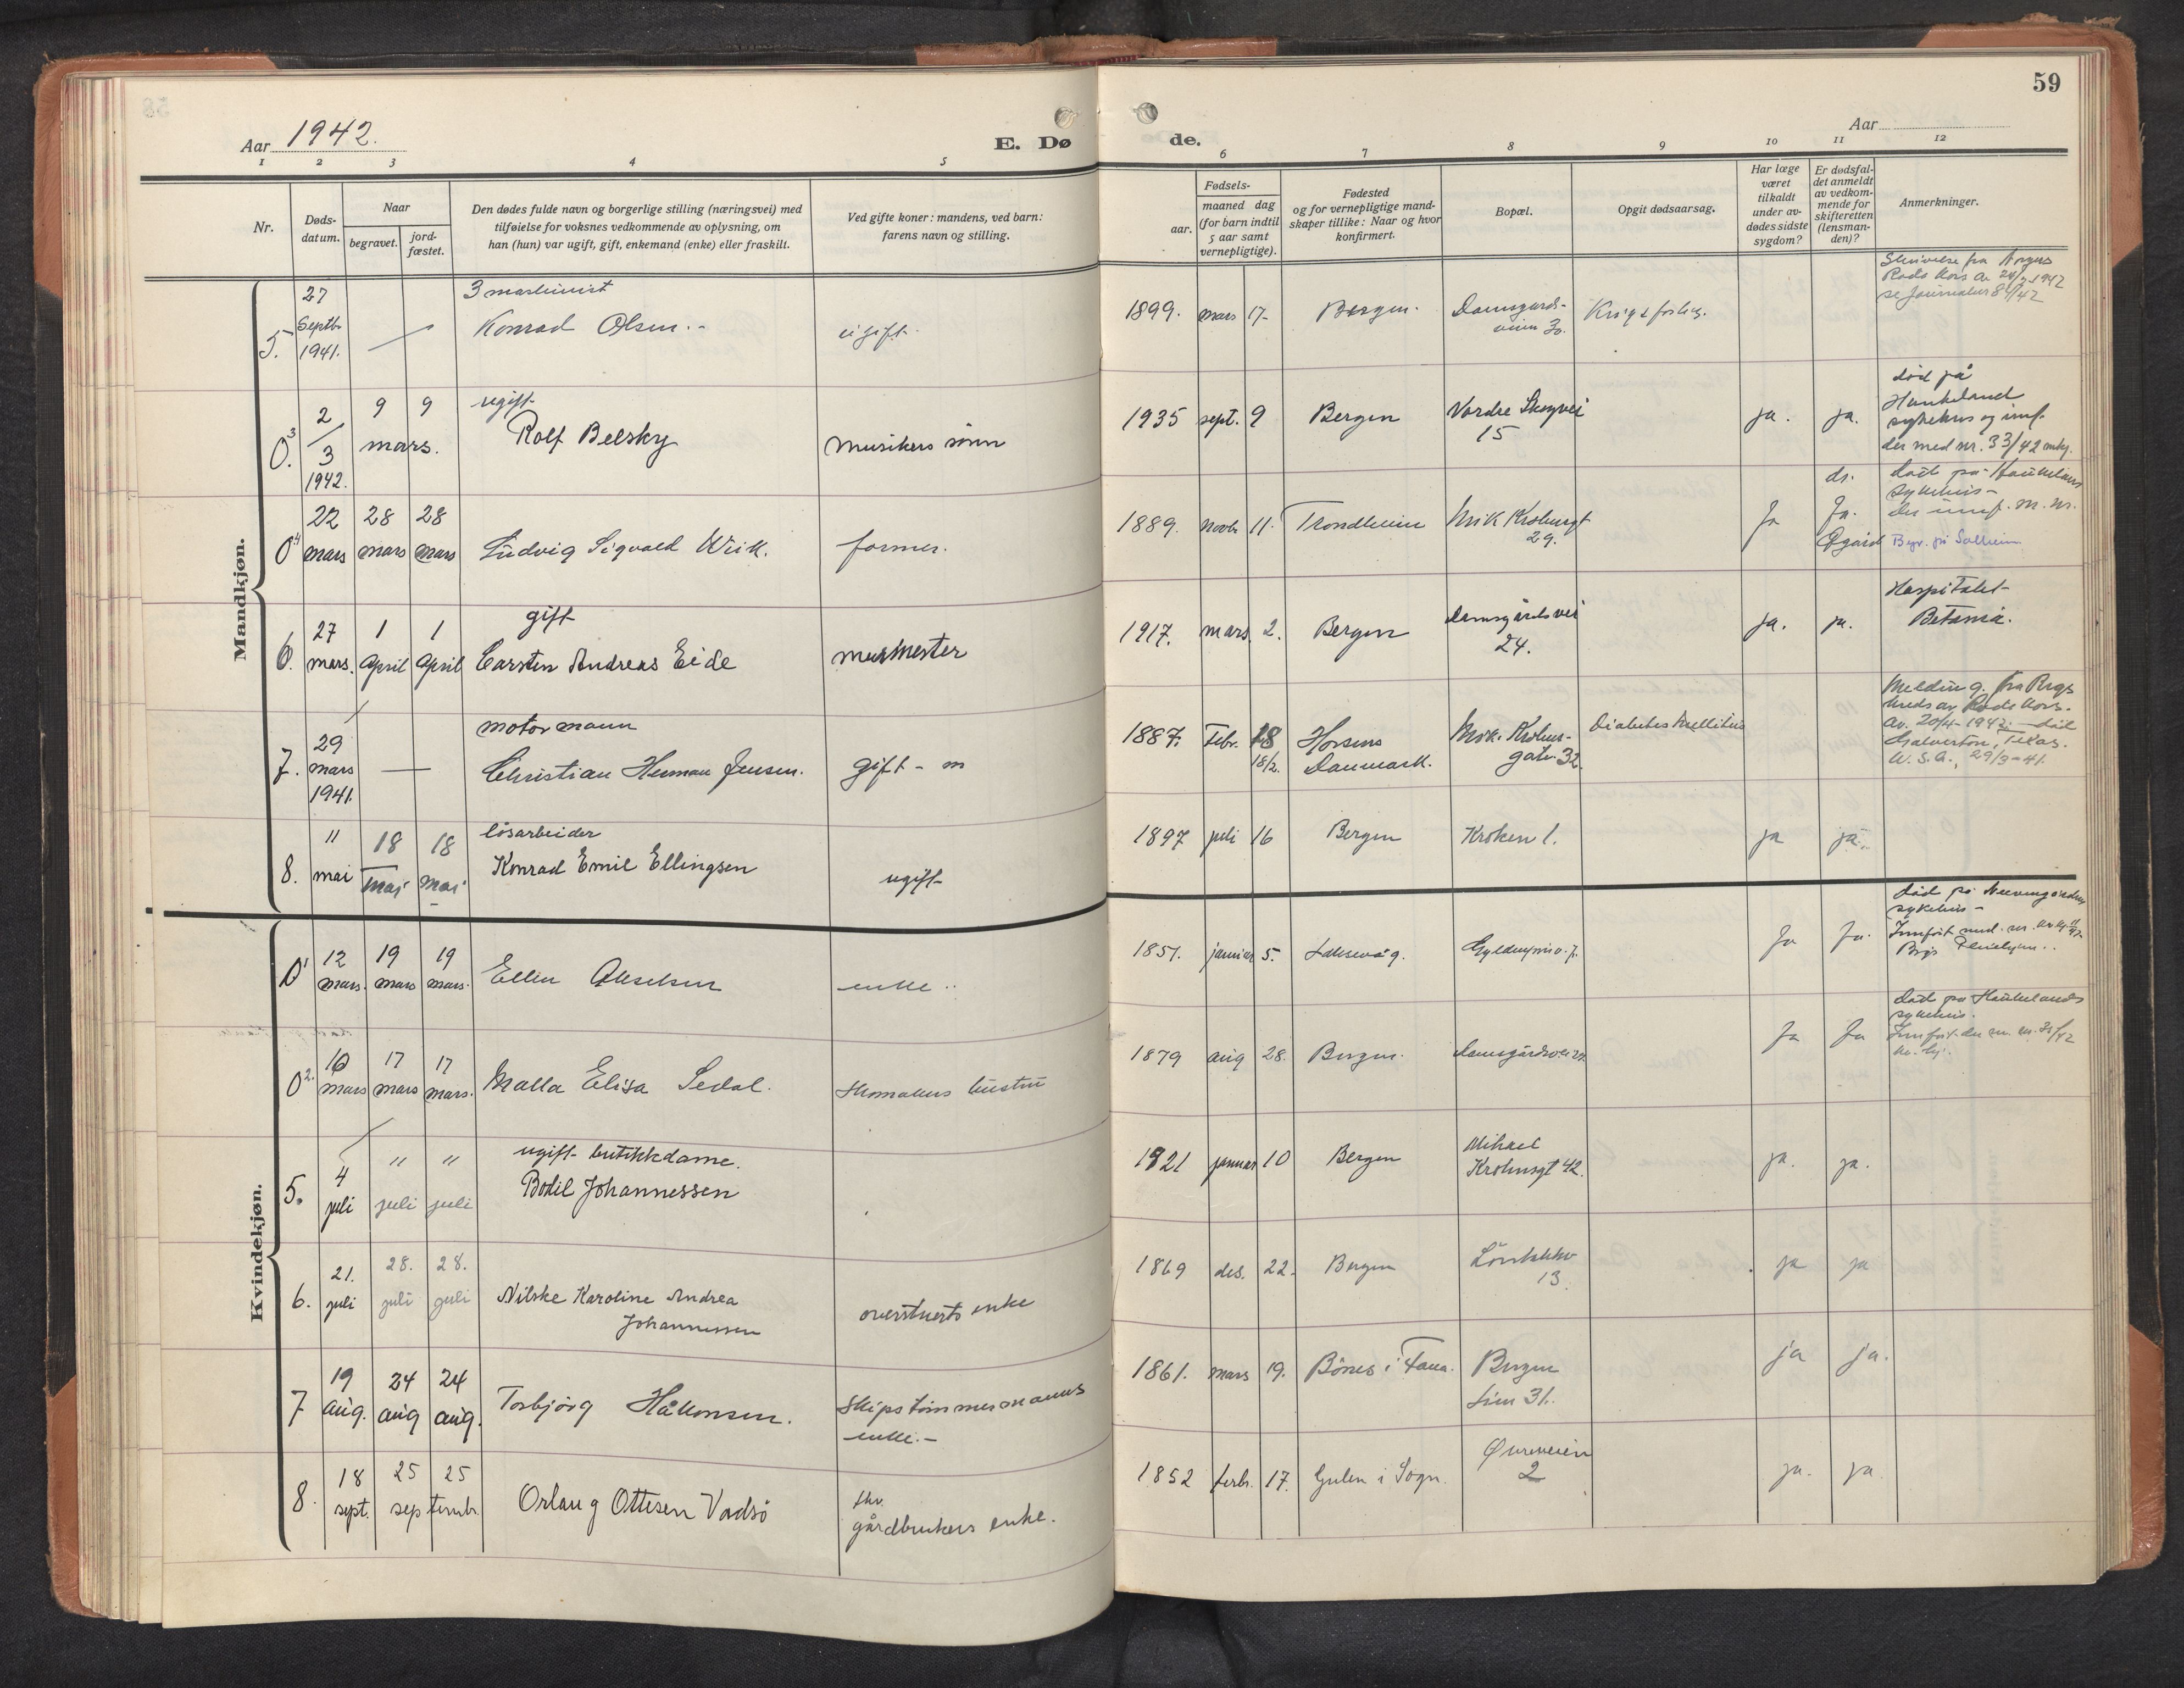 59
Aar 1942.
E. Dø
de.
Aar
1 2 3 4 5 6 7 8 9 10 11 12
Nr.
Døds-
datum.
Naar
begravet.
jord-
fæstet.
Den dødes fulde navn og borgerlige stilling (næringsvei) med
tilføielse for voksnes vedkommende av oplysning, om
han (hun) var ugift, gift, enkemand (enke) eller fraskilt.
Ved gifte koner: mandens, ved barn:
farens navn og stilling.
Fødsels-
aar.
maaned dag
(for barn indtil
5 aar samt
vernepligtige).
Fødested
og for vernepligtige mand-
skaper tillike: Naar og hvor
konfirmert.
Bopæl.
Opgit dødsaarsag.
Har læge
været
tilkaldt
under av-
dødes sidste
sygdom?
Er dødsfal-
det anmeldt
av vedkom-
mende for
skifteretten
(lensman-
den)?
Anmerkninger.
Mandkjøn.
5.
27
Septb.
1941.
3 maskinist
Konrad Olsen.
ugift.
1899. mars 17. Bergen.
Damsgårds-
veien 30.
Krigsforlis.
Skrivelse fra Norges
Røde Kors av 1942
se Journalnr 84/42
0. 3
2
3
1942.
9 9
mars.
ugift
Rolf Belsky
Musikers sønn
1935 sept. 9 Bergen
Vordre Skogvei
15
ja. ja.
død på
Haukeland
sykehus og innf.
der med nr. 33/42 mkj.
0 4
22 28 28
mars mars mars
Ludvig Sigvald Wiik.
former.
1889. Novb. 11. Trondheim
Mik Krohnsgt
29.
Ja
ds.
Ja.
død på Haukeland
Sykehus -
der innf. m. nr.
Begr. på Solheim
6.
27 1 1
mars. April April
gift
Carsten Andreas Eide
murmester
1917. mars. 2. Bergen
Damsgårdsvei
24.
ja. ja.
Hospitalet
Betania.
7.
29
mars
1941.
motormann
Christian Herman Jensen.
gift - m
1887. Febr. 18
18/2.
Horsens
Danmark.
Mik. Krohns-
gate 32.
Diabetes Mellitus
Melding fra
av Røde Kors.
av. 20/4-1942. død
Galveston, Texas.
U.S.A., 29/3-41.
8.
11 18 18
mai mai mai
løsarbeider
Konrad Emil Ellingsen
ugift
1897 juli 16 Bergen Kroken 1.
ja ja.
Kvindekjøn.
0 1
12 19 19
mars. mars mars.
Ellen Akselsen
enke
1851. januar 5. Laksevåg.
Ja Ja.
død på
sykehus -
Innført med. nr.
0 2.
10 17 17
mars mars mars.
Malla Elisa Sedal.
Skomakers hustru
1879 aug 28. Bergen. Damsgårdsvei
Ja Ja
død på Haukelands
sykehus.
Innført der m. nr.
5.
4 " "
juli juli juli
ugift butikkdame.
Bodil Johannessen
1921 januar 10 Bergen
Mikael
Krohnsgt 42.
ja. ja.
6.
21. 28. 28.
juli juli juli
Nilske Karoline Andrea
Johannessen
overstuerts enke
1869 des. 22. Bergen
13.
ja ja
7
19 24 24
aug. aug aug.
Torbjørg Håkonsen.
Skipstømmermanns
enke.-
1861. mars 19. Bønes i Fana.
Bergen
Lien 31.
ja ja.
8.
18 25 25
sept. septembr.
Orlaug Ottesen Vadsø
fhv.
gårdbrukers enke.
1852 febr. 17. Gulen i Sogn.
Øvreveien
2
ja. ja.